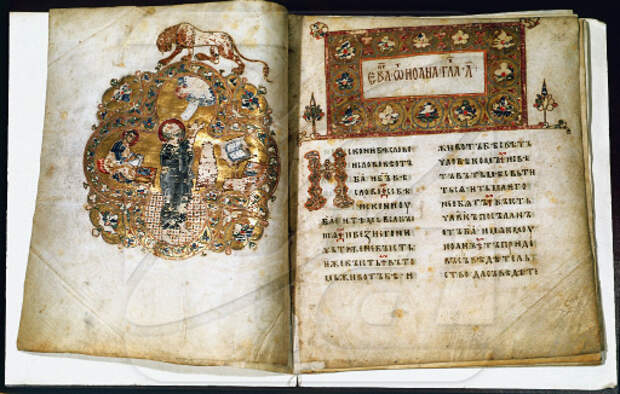 ЕВА ѾИОАНА ГЛА А
Искони бѣ слово
и слово бѣ отъ
ба и бъ бѣ
слово се бѣ
искони оу
ба и тѣмь вьса бы
шѧ и без него ни
чьтоже не бысть
еже бысть въ то
мь животъ бѣ и
животъ бѣ свѣтъ
чловѣкомъ и свѣ
тъ въ тьмѣ свьти
тьсѧ и тьма ѥго
не обѧтъ бысть
чловѣкъ посъланъ
отъ ба имѧ ѥмоу
иоанъ тъ приде
въ съвѣдѣтель
ство да съвѣдѣте